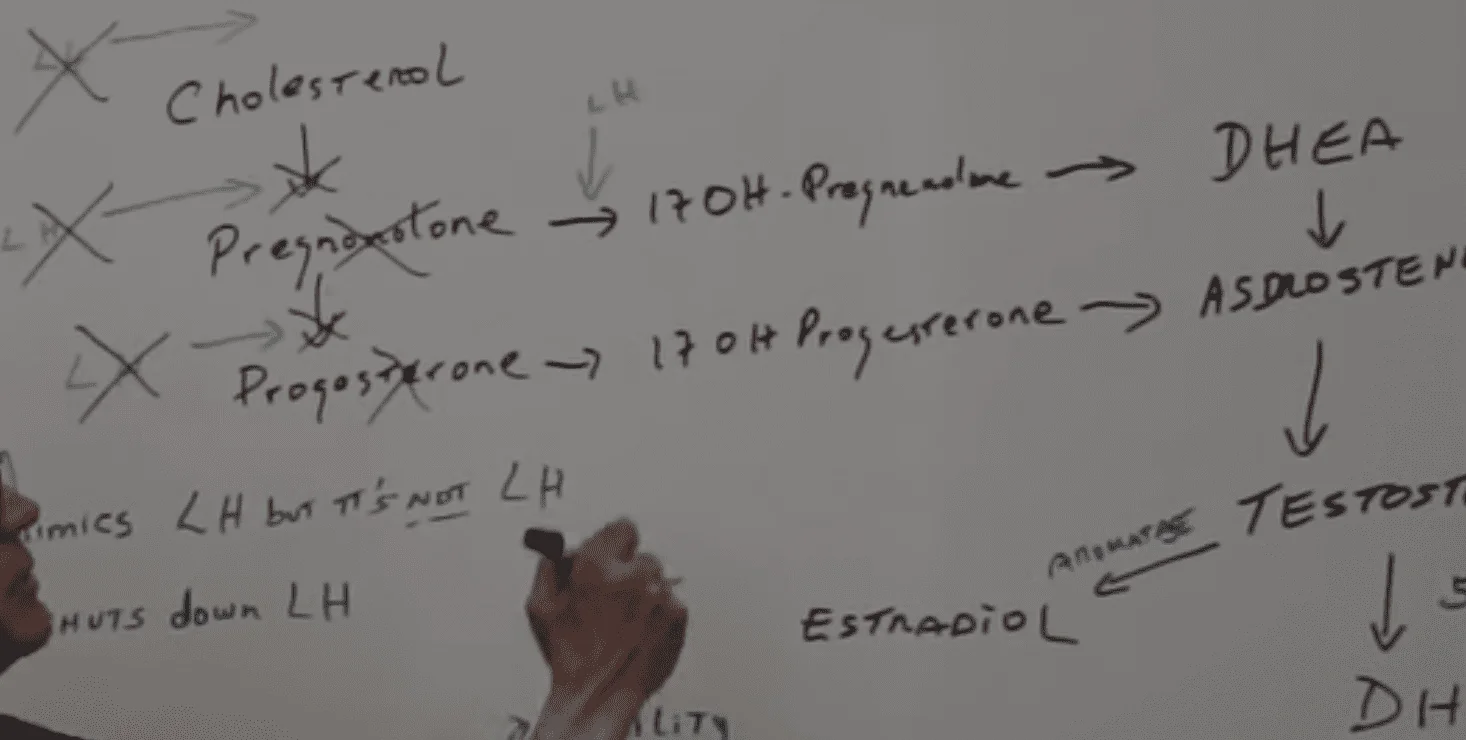 LH →
Cholesterol
LH
LH → Pregnonotone → 17 OH - Pregnenolone → DHEA
L → Progosterone → 17 OH Progesterone → ASDROSTEN
TESTOST
AROMATASE
imics LH but IT's NOT LH
HUTS down LH
ESTRADIOL
5
DH
LITY